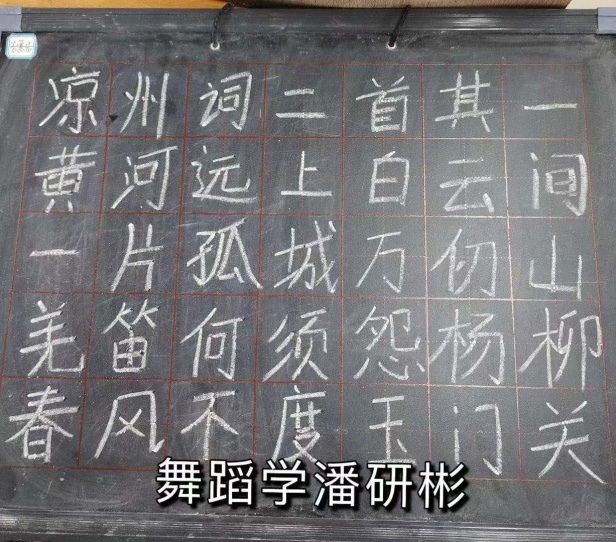 凉州词二首其一
黄河远上白云间
一片孤城万仞山
羌笛何须怨杨柳
春风不度玉门关
舞蹈学潘研彬